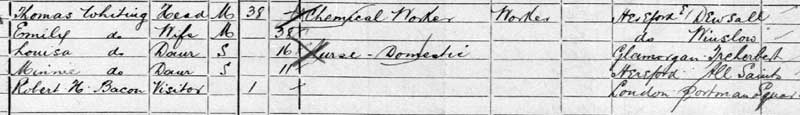 Thomas Whiting Head M 39 Chemical Worker Worker Hereford Dewsall
Emily do Wife M 38 do Winslow
Louisa do Daur S 16 Nurse - Domestic Glamorgan Treherbert
Minnie do Daur S 11 Hereford All Saints
Robert H. Bacon Visitor 1 London Portman Square